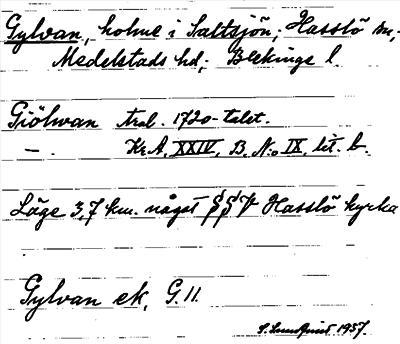 Gylvan, holme i Saltsjön; Hasslö sn,
Medelstads hd; Blekinge l.
Giölwan trol. 1720-talet.
— . Kr.A. XXIV, B. No IX, lit. b.
Läge 3,7 km. något SSV Hasslö kyrka
Gylvan ek, G.11.
S. Lundquist 1937.